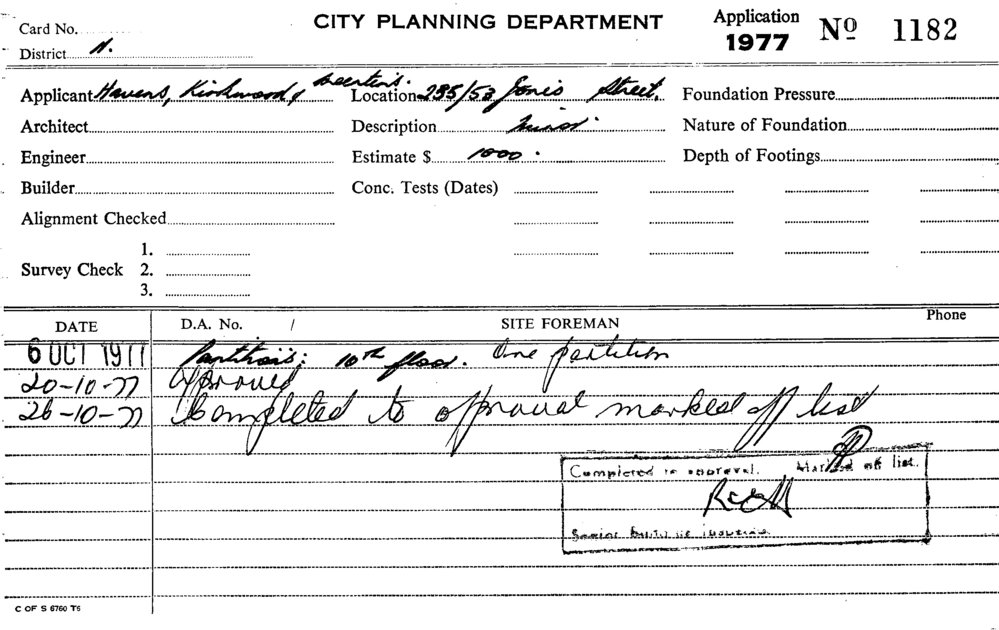 Card No.
CITY PLANNING DEPARTMENT
Application
1977
Nº 1182
District N.
Applicant Havens, Kirkwood,
Location 235/53 Street.
Foundation Pressure
Architect
Description minor
Nature of Foundation
Engineer
Estimate $ 1000.
Depth of Footings
Builder
Conc. Tests (Dates)
Alignment Checked
1.
Survey Check 2.
3.
DATE D.A. No. / SITE FOREMAN Phone
6 OCT 1977 10th floor. One partition
20-10-77 approved
26-10-77 Completed to approval marked off list
Completed to approval. Marked off list.
Senior building inspector
C OF S 6760 T6